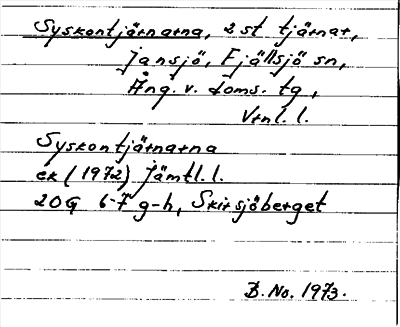 Syskontjärnarna, 2 st tjärnar,
Jansjö, Fjällsjö sn,
Ång. v. doms. tg,
Vrnl. l.
Syskontjärnarna
ek (1972) Jämtl. l.
20G 6-7 g-h, Skirsjöberget
B. No. 1973.